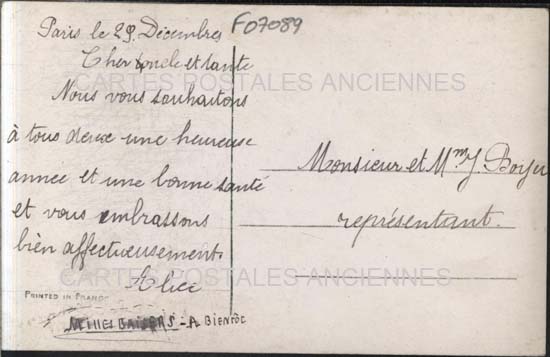 F07089
Paris le 29 Décembre
Cher oncle et tante
Nous vous souhaitons
à tous deux une heureuse
année et une bonne santé
et vous embrassons
bien affectueusement.
Alice
Monsieur et Mme J. Boyer
représentant.
PRINTED IN FRANCE
MILLES BAISERS - A BIENTOC
CARTES POSTALES ANCIENNES
CARTES POSTALES ANCIENNES